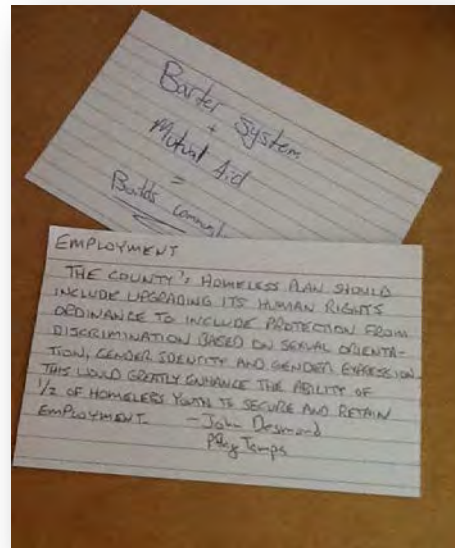 Barter System
+
Mutual Aid
=
Builds
EMPLOYMENT
THE COUNTY'S HOMELESS PLAN SHOULD
INCLUDE UPGRADING ITS HUMAN RIGHTS
ORDINANCE TO INCLUDE PROTECTION FROM
DISCRIMINATION BASED ON SEXUAL ORIENTA-
TION, GENDER IDENTITY AND GENDER EXPRESSION.
THIS WOULD GREATLY ENHANCE THE ABILITY OF
1/2 OF HOMELESS YOUTH TO SECURE AND RETAIN
EMPLOYMENT. - John Desmond
Temps